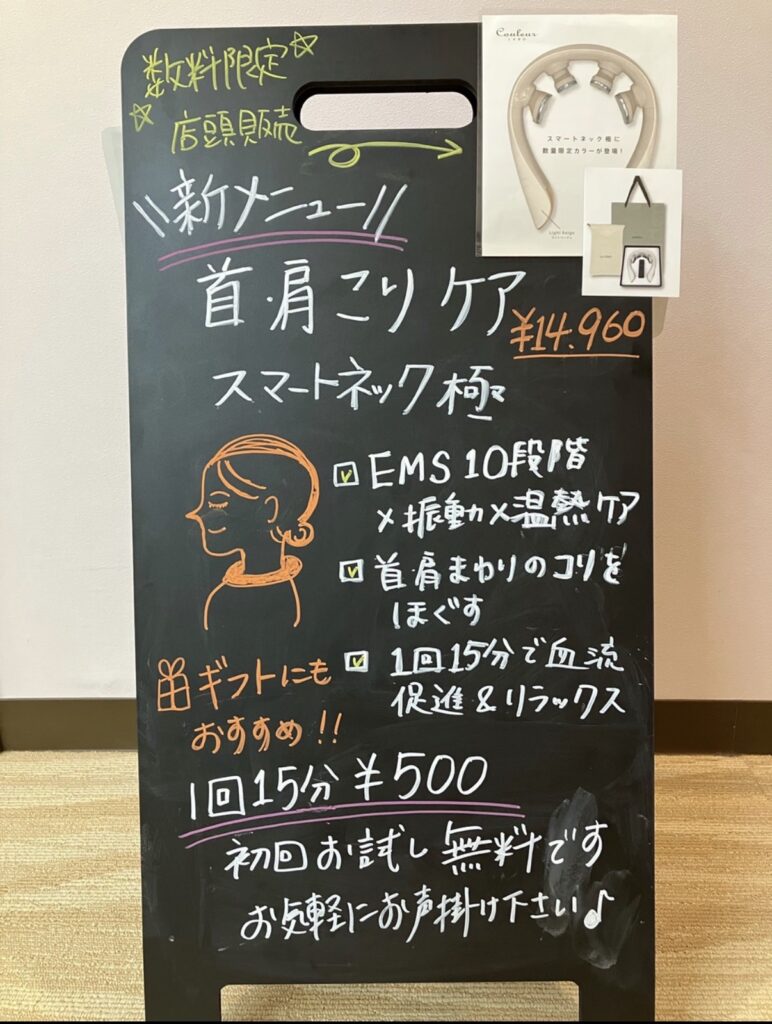 数料限定
店頭販売
Couleur
LABO
スマートネック極に
数量限定カラーが登場!
Light Beige
ライトベージュ
\\新メニュー//
首・肩こりケア
¥14.960
スマートネック極
EMS 10段階
×振動×温熱ケア
首肩まわりのコリを
ほぐす
1回15分で血流
促進&リラックス
ギフトにも
おすすめ!!
1回15分¥500
初回お試し無料です
お気軽にお声掛け下さい♪